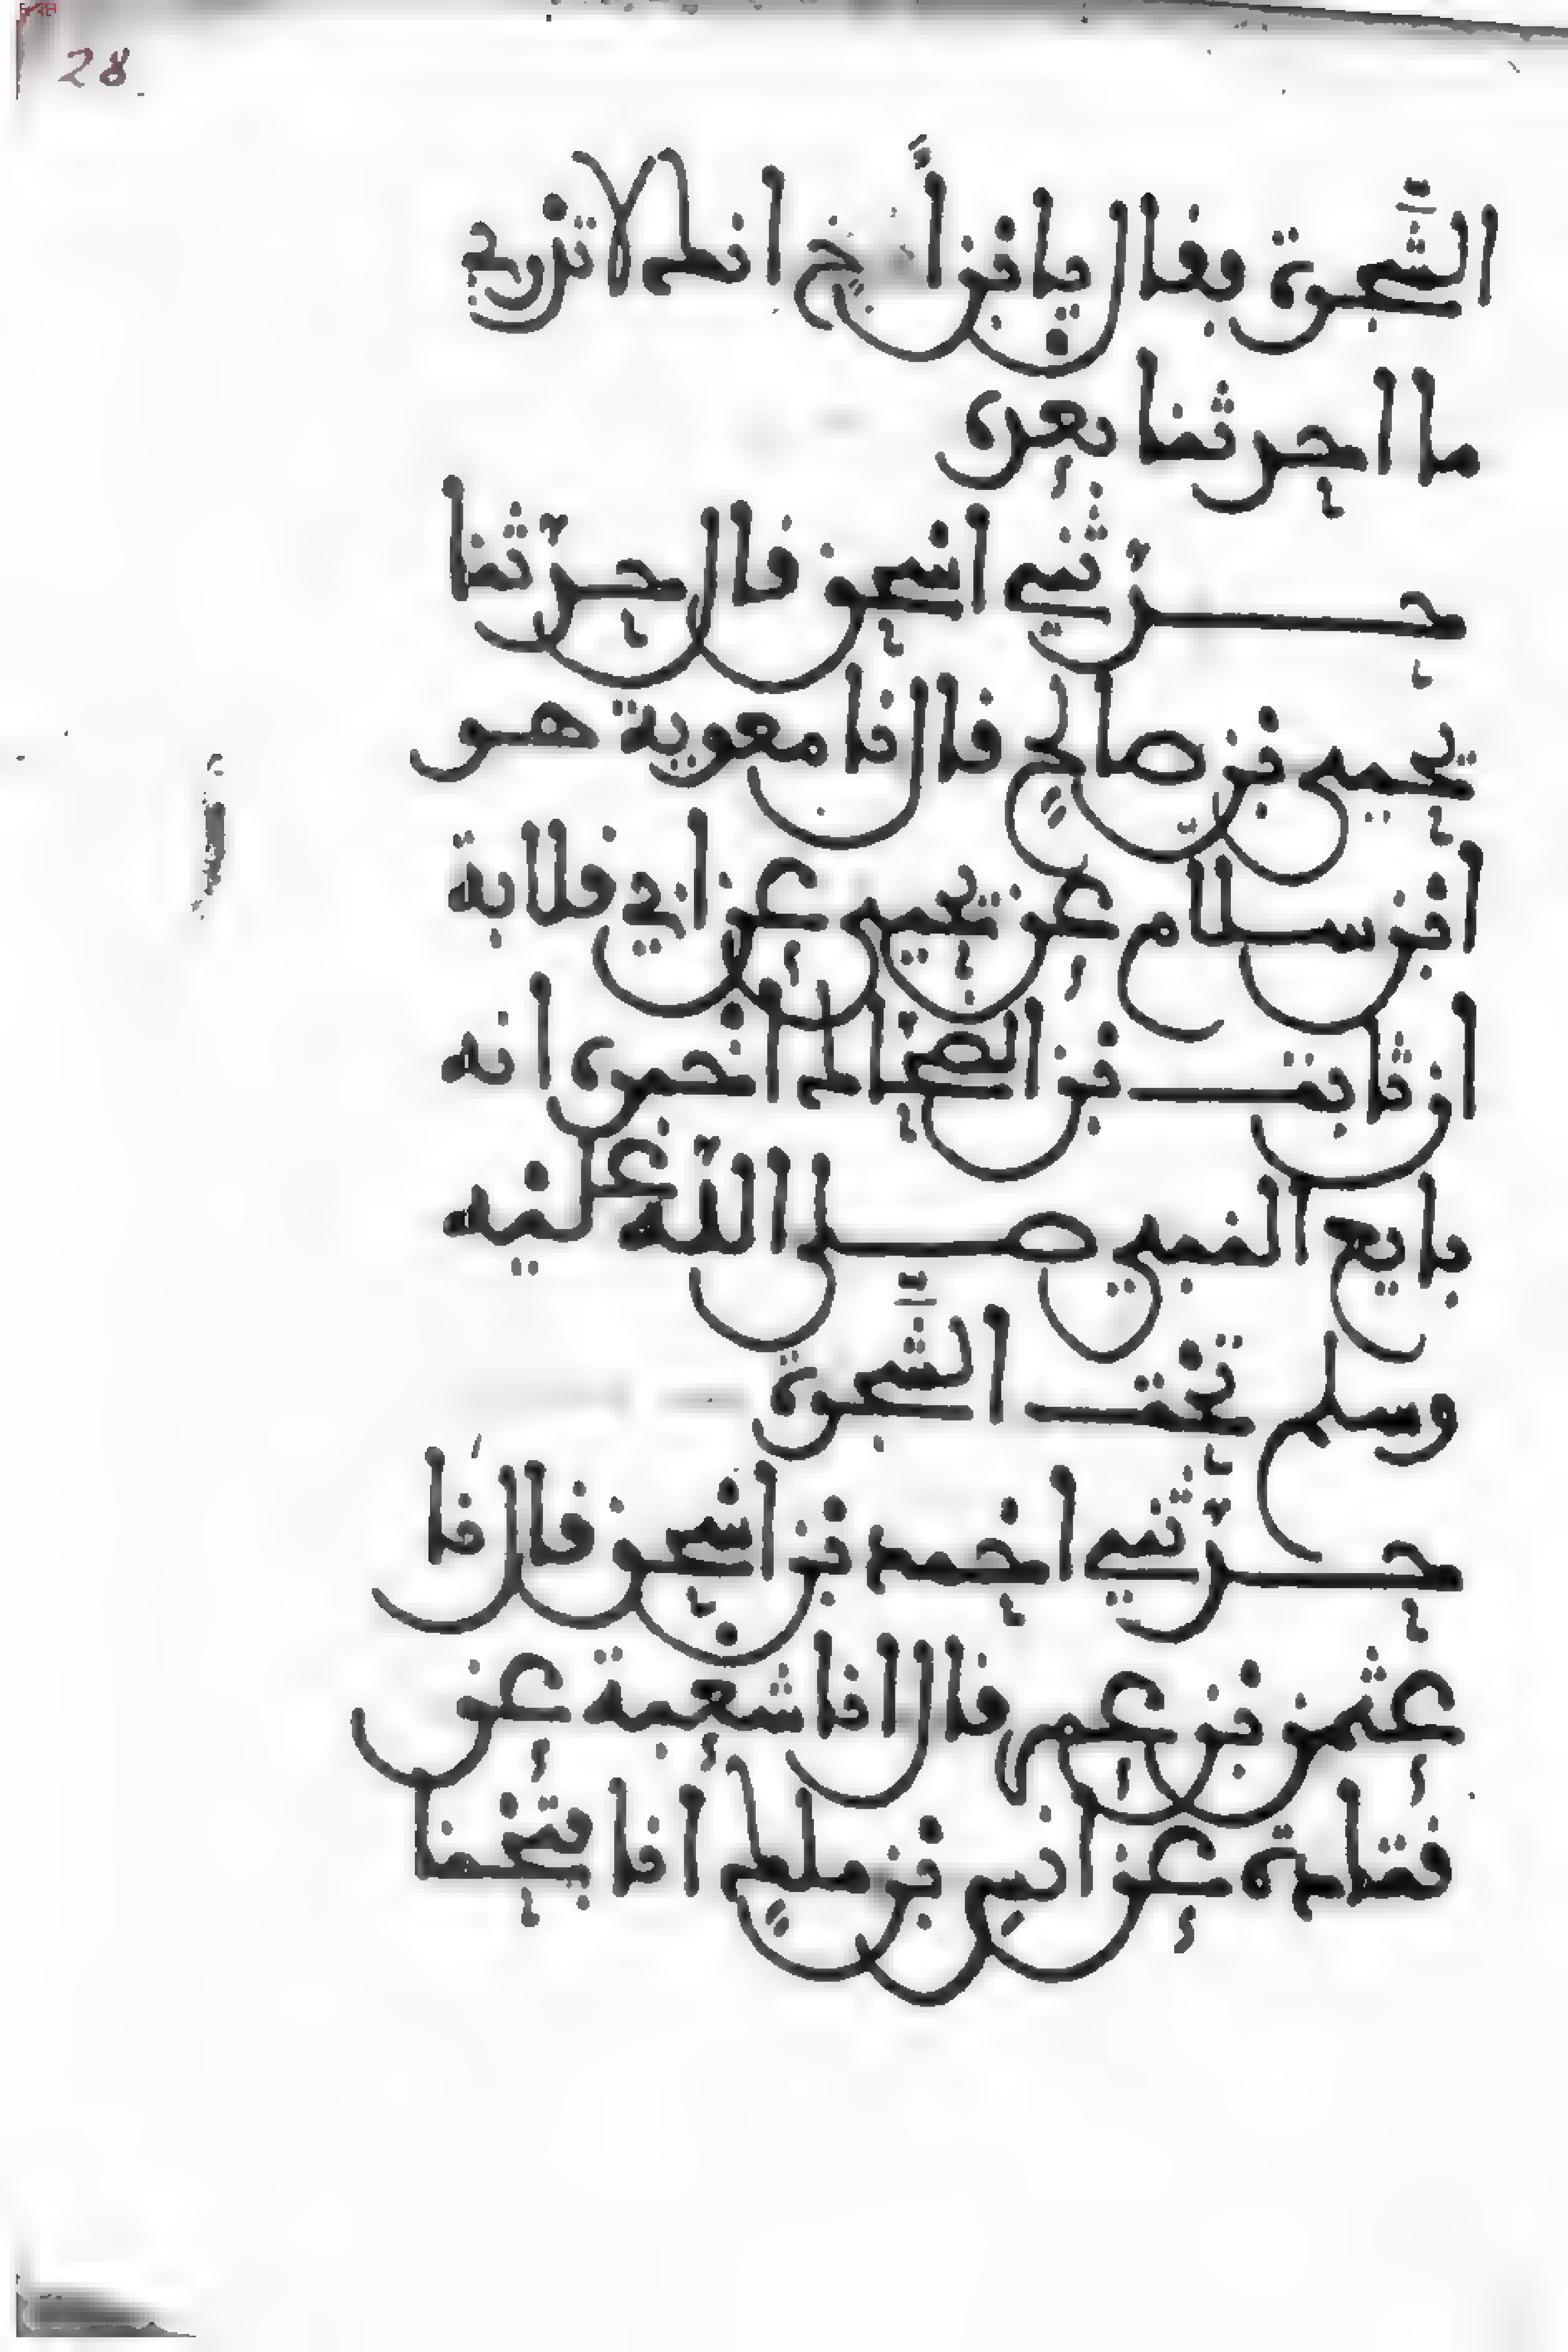 28
الشجرة فقال يا ابن أخي انك لا تدري
ما احدثنا بعده
حدثني اسحق قال حدثنا
يحيى بن صالح قال نا معوية هو
ابن سلام عن يحيى عن ابي قلابة
ان ثابت بن الضحاك اخبره انه
بايع النبي صلى الله عليه
وسلم تحت الشجرة
حدثني احمد بن اسحق قال نا
عثمن بن عمر قال انا شعبة عن
قتادة عن انس بن ملك انا فتحنا